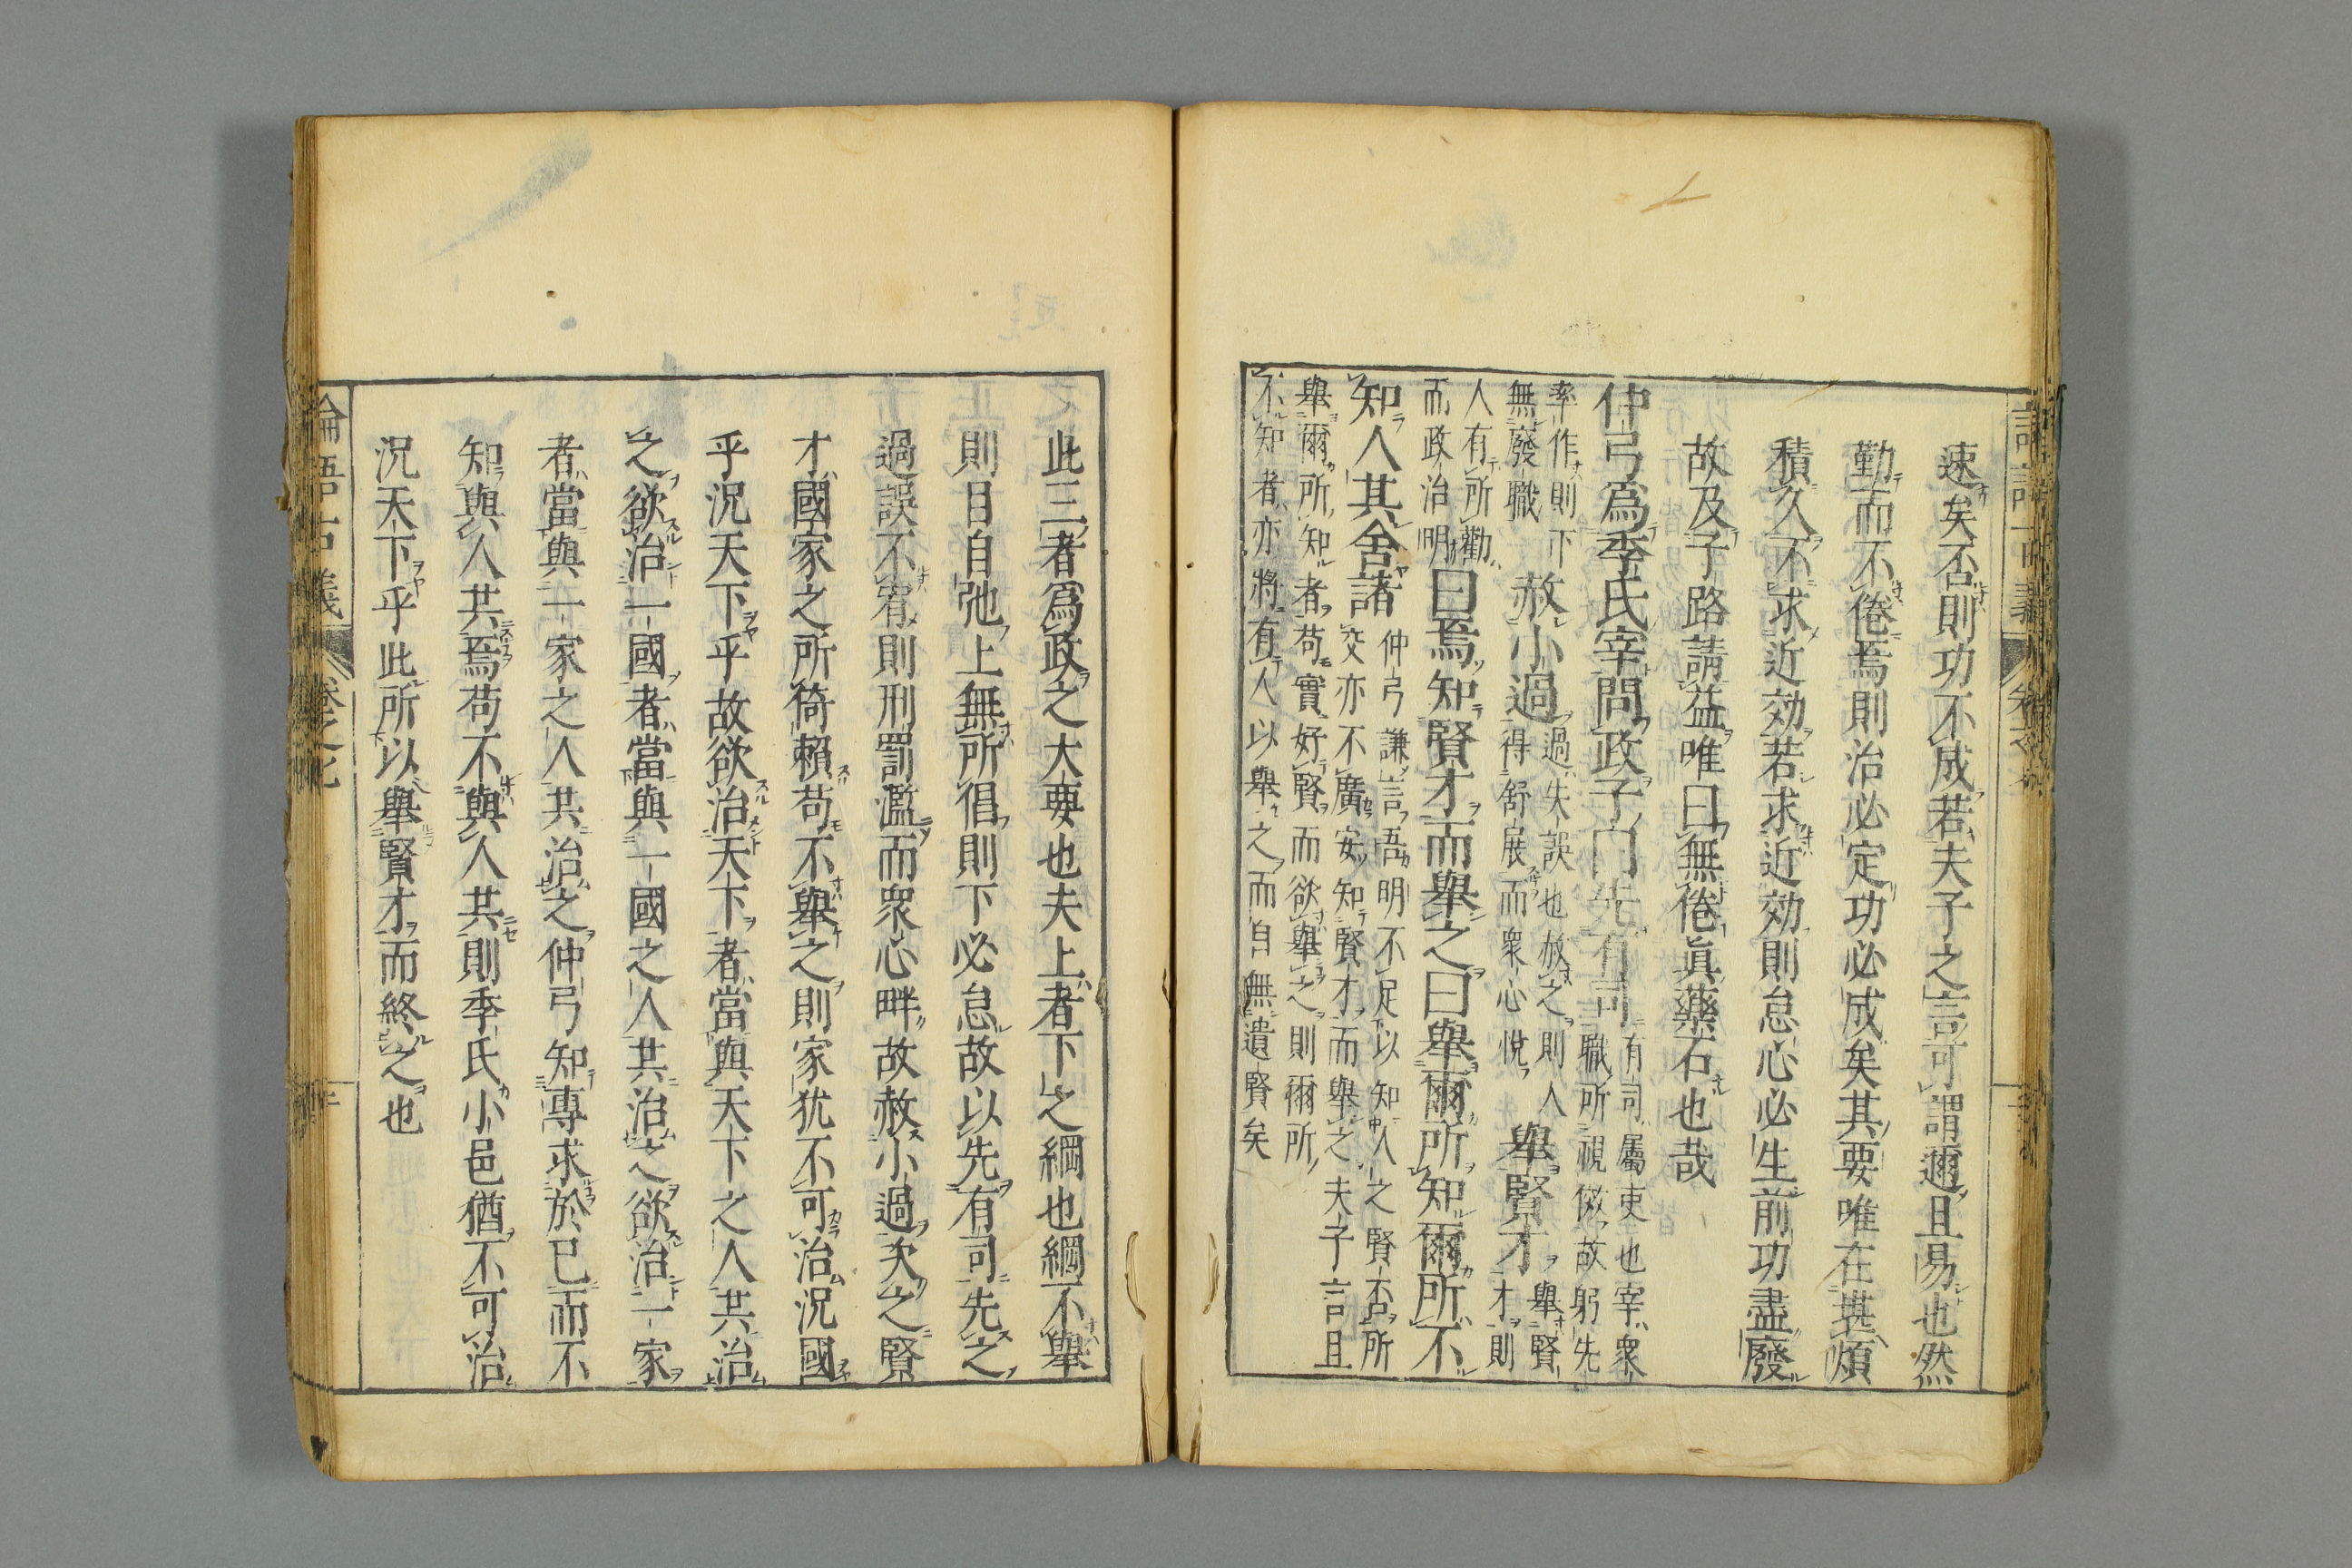 速矣否則功不成若夫子之言可謂邇且易也然
勤而不倦焉則治必定功必成矣其要唯在甚煩
積久不求近効若求近効則怠心必生前功盡廢
故及子路請益唯曰無倦眞藥石也哉
仲弓爲季氏宰問政子曰先有司
有司屬吏也宰衆
職所視傚故躬先
率作則下
無廢職
赦小過
過失誤也赦之則人
得舒展而衆心悅
舉賢才
舉賢
才則
人有所勸
而政治明
曰焉知賢才而舉之曰舉爾所知爾所不
知人其舍諸
仲弓謙言吾明不足以知人之賢否所
交亦不廣安知賢才而舉之夫子言且
舉爾所知者苟實好賢而欲舉之則爾所
不知者亦將有人以舉之而自無遺賢矣
此三者爲政之大要也夫上者下之綱也綱不舉
則目自弛上無所倡則下必怠故以先有司先之
過誤不宥則刑罰濫而衆心畔故赦小過次之賢
才國家之所倚賴苟不舉之則家犹不可治況國
乎況天下乎故欲治天下者當與天下之人共治
之欲治一國者當與一國之人共治之欲治一家
者當與一家之人共治之仲弓知專求於已而不
知與人共焉苟不與人共則季氏小邑猶不可治
況天下乎此所以舉賢才而終之也
論語古義
卷之七